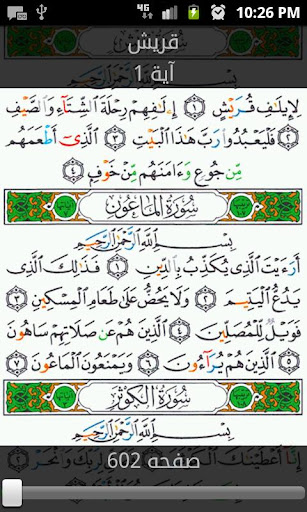 4G 10:26 PM
قريش
آية 1
بِسْمِ ٱللَّهِ ٱلرَّحْمَٰنِ ٱلرَّحِيمِ
لِإِيلَٰفِ قُرَيْشٍ ١ إِۦلَٰفِهِمْ رِحْلَةَ ٱلشِّتَآءِ وَٱلصَّيْفِ
٢ فَلْيَعْبُدُوا۟ رَبَّ هَٰذَا ٱلْبَيْتِ ٣ ٱلَّذِىٓ أَطْعَمَهُم
مِّن جُوعٍ وَءَامَنَهُم مِّنْ خَوْفٍۭ ٤
سُورَةُ المَاعُون
بِسْمِ ٱللَّهِ ٱلرَّحْمَٰنِ ٱلرَّحِيمِ
أَرَءَيْتَ ٱلَّذِى يُكَذِّبُ بِٱلدِّينِ ١ فَذَٰلِكَ ٱلَّذِى
يَدُعُّ ٱلْيَتِيمَ ٢ وَلَا يَحُضُّ عَلَىٰ طَعَامِ ٱلْمِسْكِينِ ٣
فَوَيْلٌ لِّلْمُصَلِّينَ ٤ ٱلَّذِينَ هُمْ عَن صَلَاتِهِمْ سَاهُونَ
٥ ٱلَّذِينَ هُمْ يُرَآءُونَ ٦ وَيَمْنَعُونَ ٱلْمَاعُونَ ٧
سُورَةُ الكَوْثَر
بِسْمِ ٱللَّهِ ٱلرَّحْمَٰنِ ٱلرَّحِيمِ
إِنَّآ أَعْطَيْنَٰكَ لِرَبِّكَ وَٱنْحَرْ ٢
صفحه 602